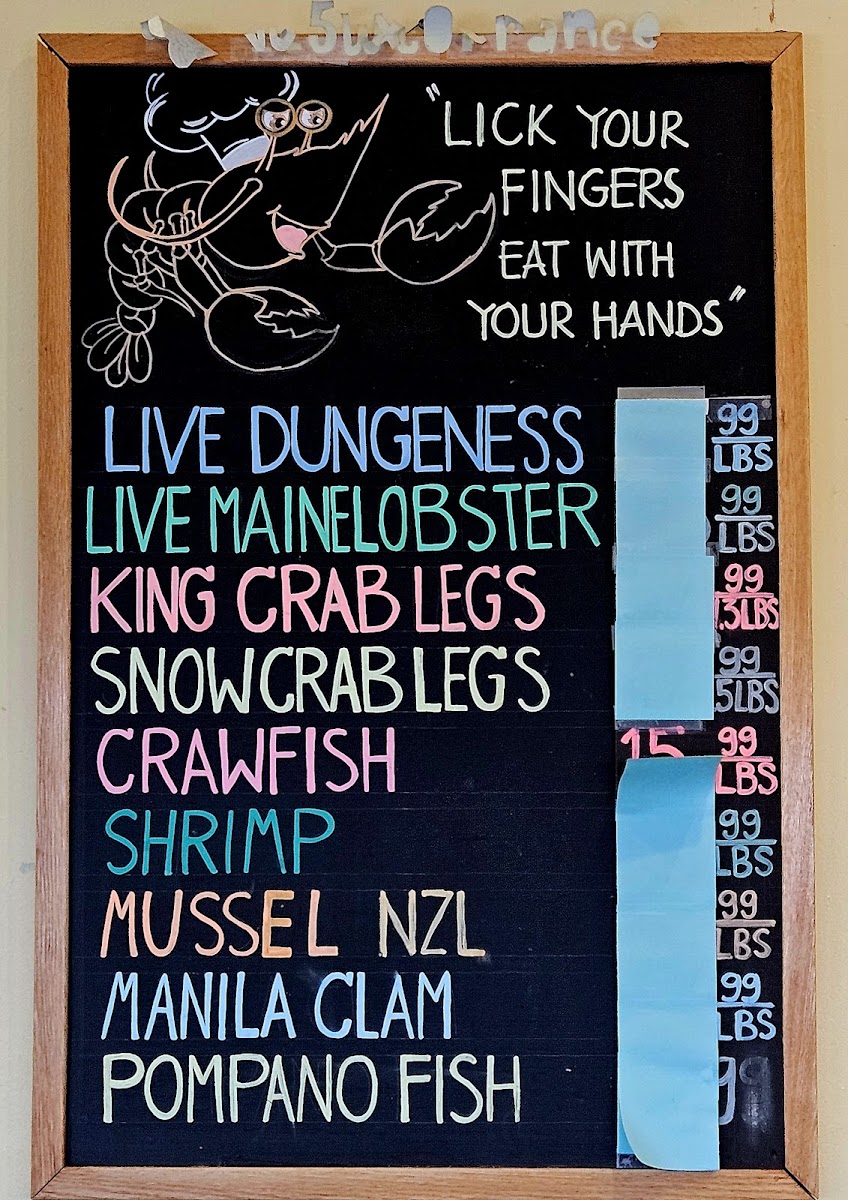 "LICK YOUR
FINGERS
EAT WITH
YOUR HANDS"
LIVE DUNGENESS 99 LBS
LIVE MAINELOBSTER 99 LBS
KING CRAB LEGS 99 .3LBS
SNOWCRAB LEGS 99 5LBS
CRAWFISH 15 99 LBS
SHRIMP 99 LBS
MUSSEL NZL 99 LBS
MANILA CLAM 99 LBS
POMPANO FISH 99